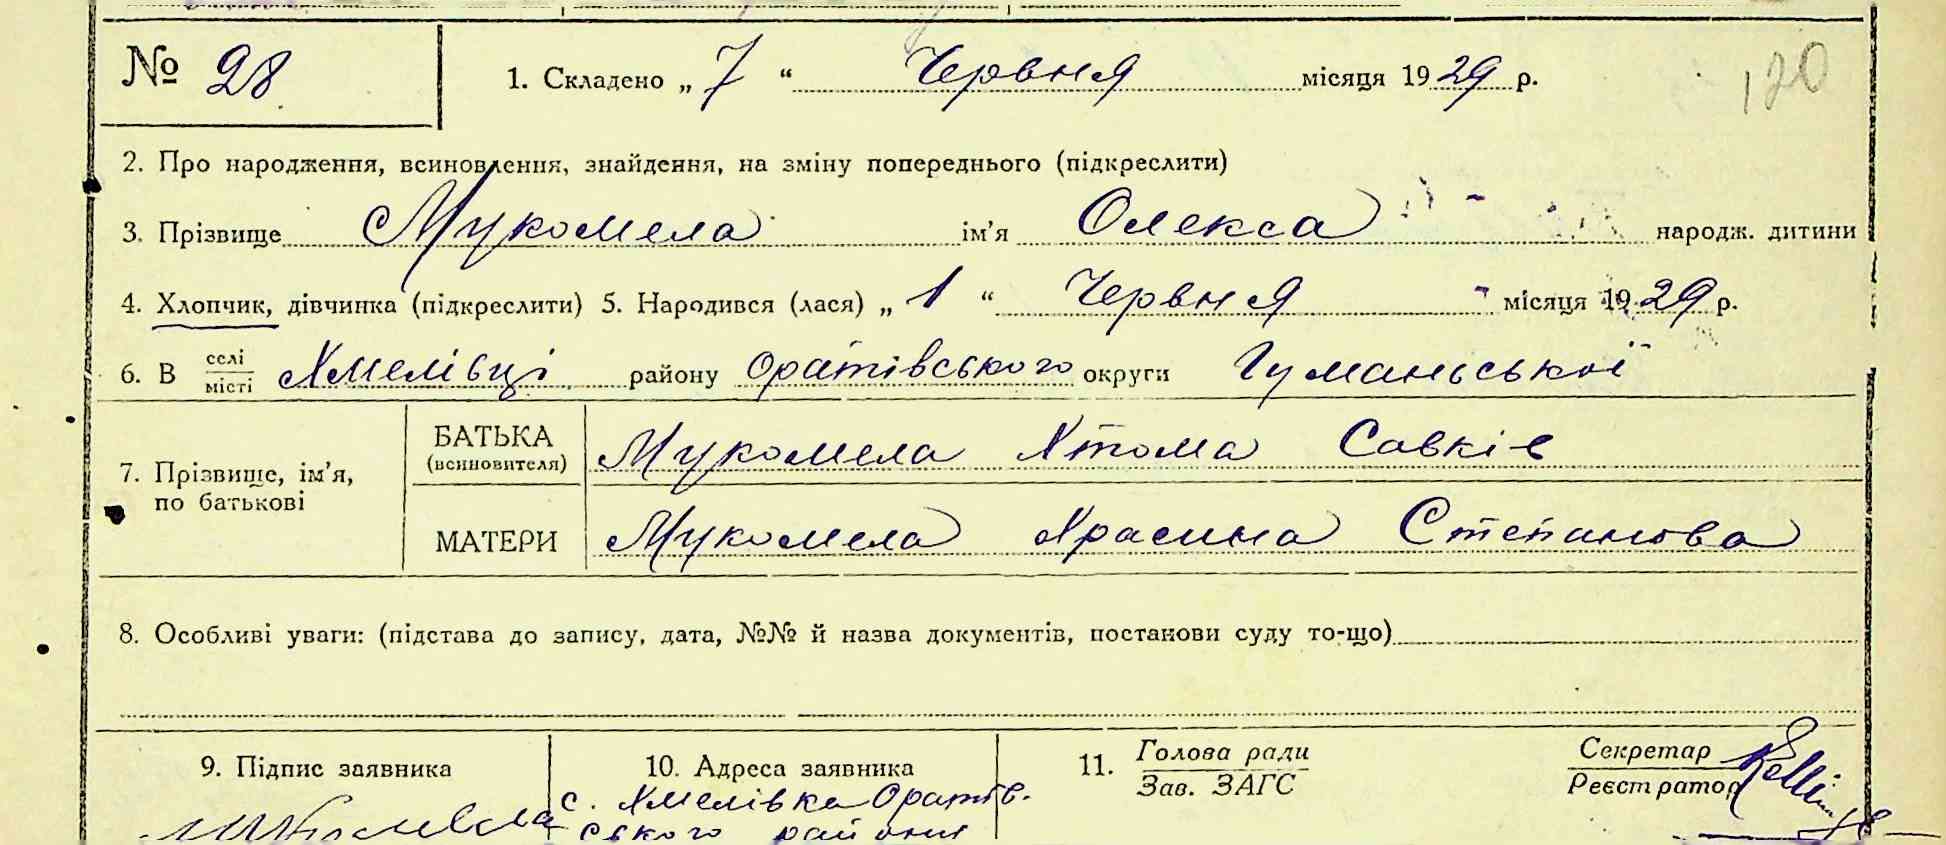 № 28 1. Складено „ 7 “ Червня місяця 1929 р. 120
2. Про народження, всиновлення, знайдення, на зміну попереднього (підкреслити)
3. Прізвище Мукомела ім’я Олекса народж. дитини
4. Хлопчик, дівчинка (підкреслити) 5. Народився (лася) „ 1 “ Червня місяця 1929 р.
6. В селі/місті Хмелівці району Оратівського округи Гуманьської
7. Прізвище, ім’я, по батькові
БАТЬКА (всиновителя) Мукомела Хтома Савків
МАТЕРИ Мукомела Степанова
8. Особливі уваги: (підстава до запису, дата, №№ й назва документів, постанови суду то-що)
9. Підпис заявника 10. Адреса заявника 11. Голова ради/Зав. ЗАГС Секретар/Реєстратор
с. Хмелівка Оратів-
ського району